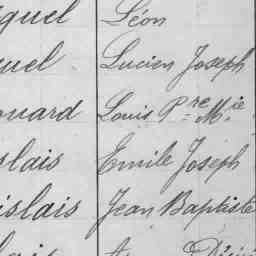 quel Léon
uel Lucien Joseph
ouard Louis Pre Mie
slais Emile Joseph
islais Jean Baptiste